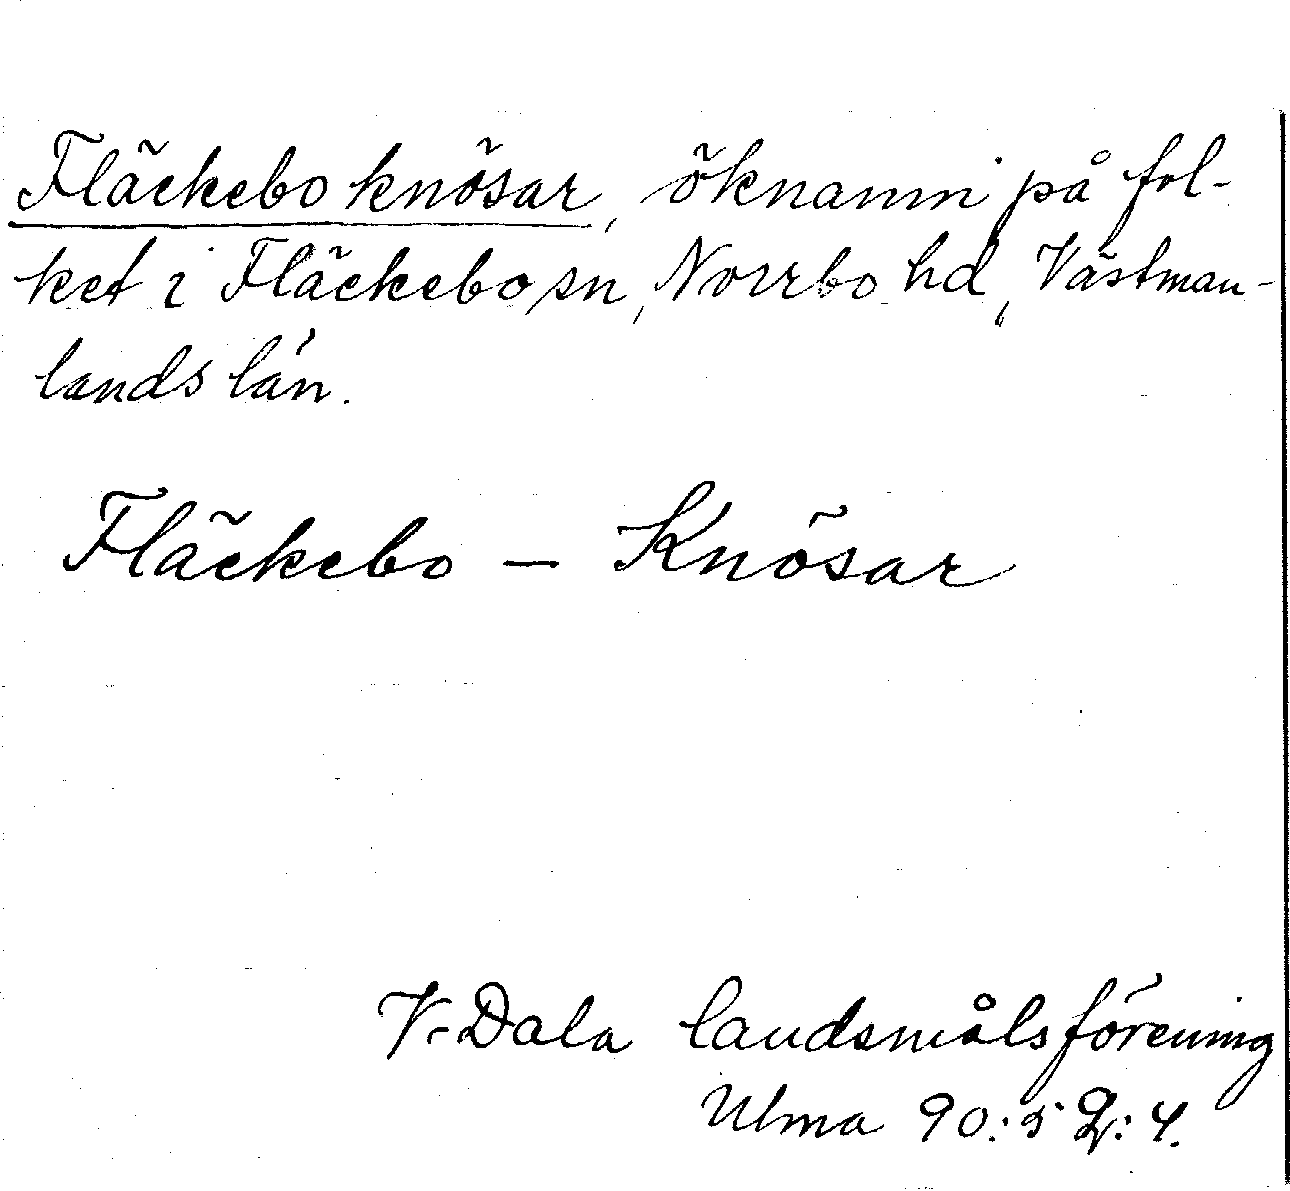 Fläckebo knösar, öknamn på fol-
ket i Fläckebo sn, Norrbo hd, Västman-
lands län.
Fläckebo – Knösar
V-Dala landsmålsförening
Ulma 90:5 : 4.